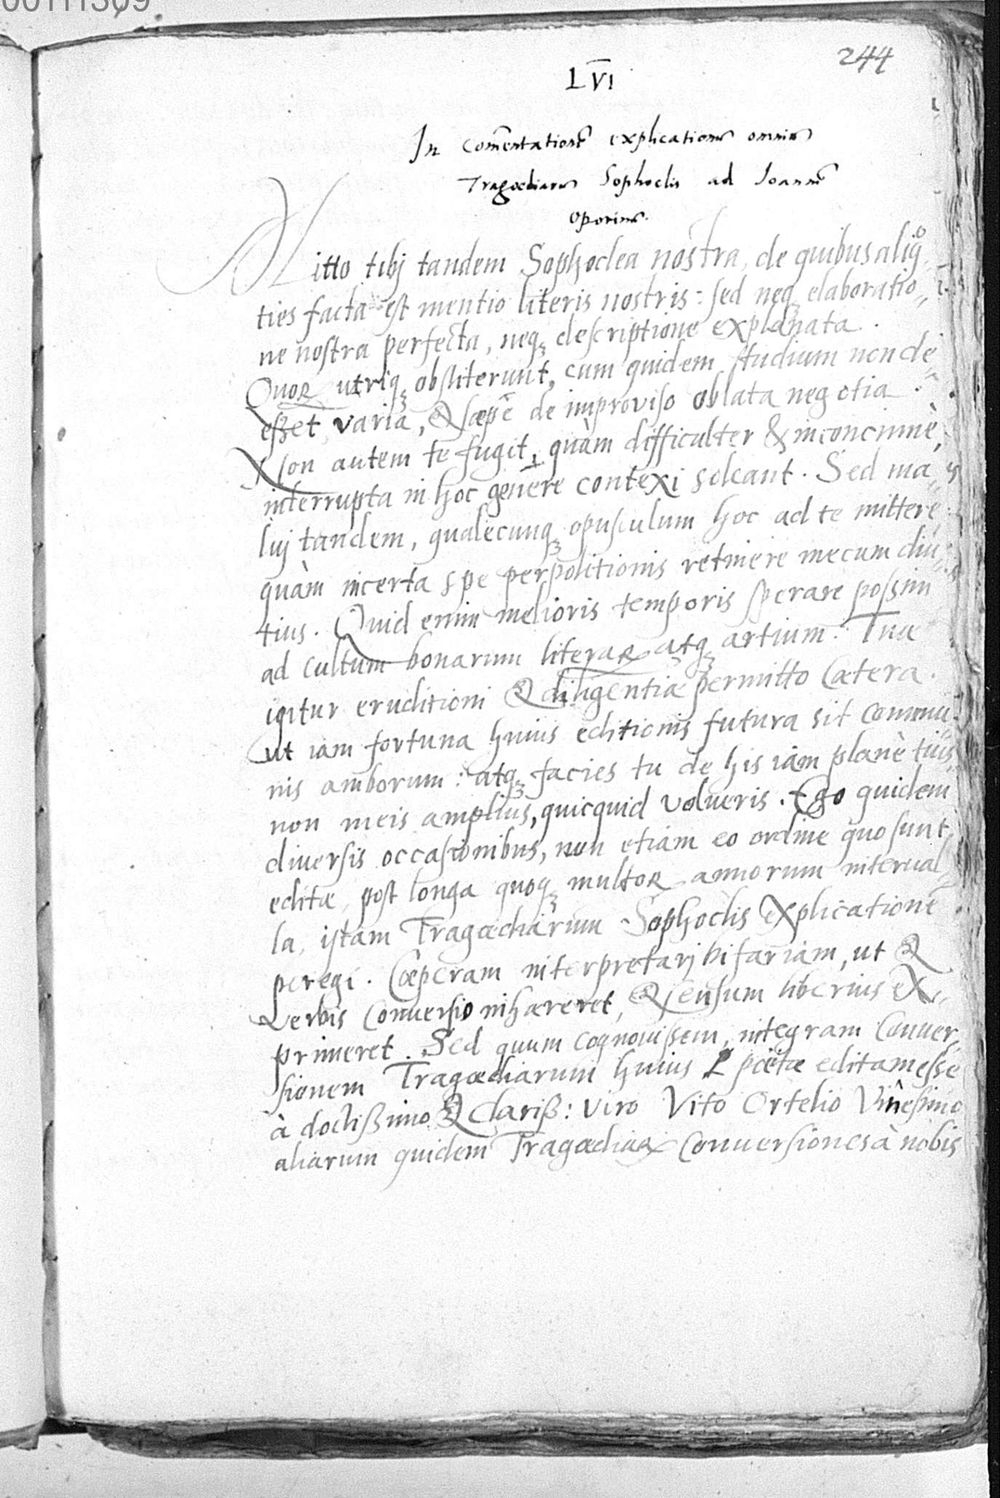 00111309
244
LVI
In comentatione explicationu omniu
Tragoediaru Sophoclis ad Ioanne
Oporinu.
Mitto tibj tandem Sophoclea nostra, de quibus aliq̃
ties facta est mentio literis nostris: sed neqꝫ elaboratio„
ne nostra perfecta, neqꝫ descriptione explanata.
Quoꝝ utriqꝫ obstiterunt, cum quidem studium non de„
eßet, varia, & sæpe de improviso oblata negotia.
Non autem te fugit, quàm difficulter & inconcinnè,
interrupta in hoc genere contexi soleant. Sed ma„
luj tandem, qualecunqꝫ opusculum hoc ad te mittere
quàm incerta spe perpolitionis retinere mecum diu„
tius. Quid enim melioris temporis sperare possim
ad cultum bonarum literaꝝ atqꝫ artium. Tuæ
igitur eruditioni & diligentiæ permitto cætera.
ut iam fortuna huius editionis futura sit commu„
nis amborum: atqꝫ facies tu de his iam planè tuis
non meis amplius, quicquid volueris. Ego quidem
diversis occasionibus, non etiam eo ordine quo sunt
editæ, post longa quoqꝫ multoꝝ annorum interual„
la, istam Tragœdiarum Sophoclis explicatione
peregi. Cœperam interpretarj bifariam, ut &
verbis conversio inhæreret, & sensum liberius ex„
primeret. Sed quum cognouissem, integram conver„
sionem Tragœdiarum huius poëtæ editam esse
à doctißimo & Clariß: viro Vito Ortelio Vinêsimo
aliarum quidem Tragœdiaꝝ conversiones à nobis